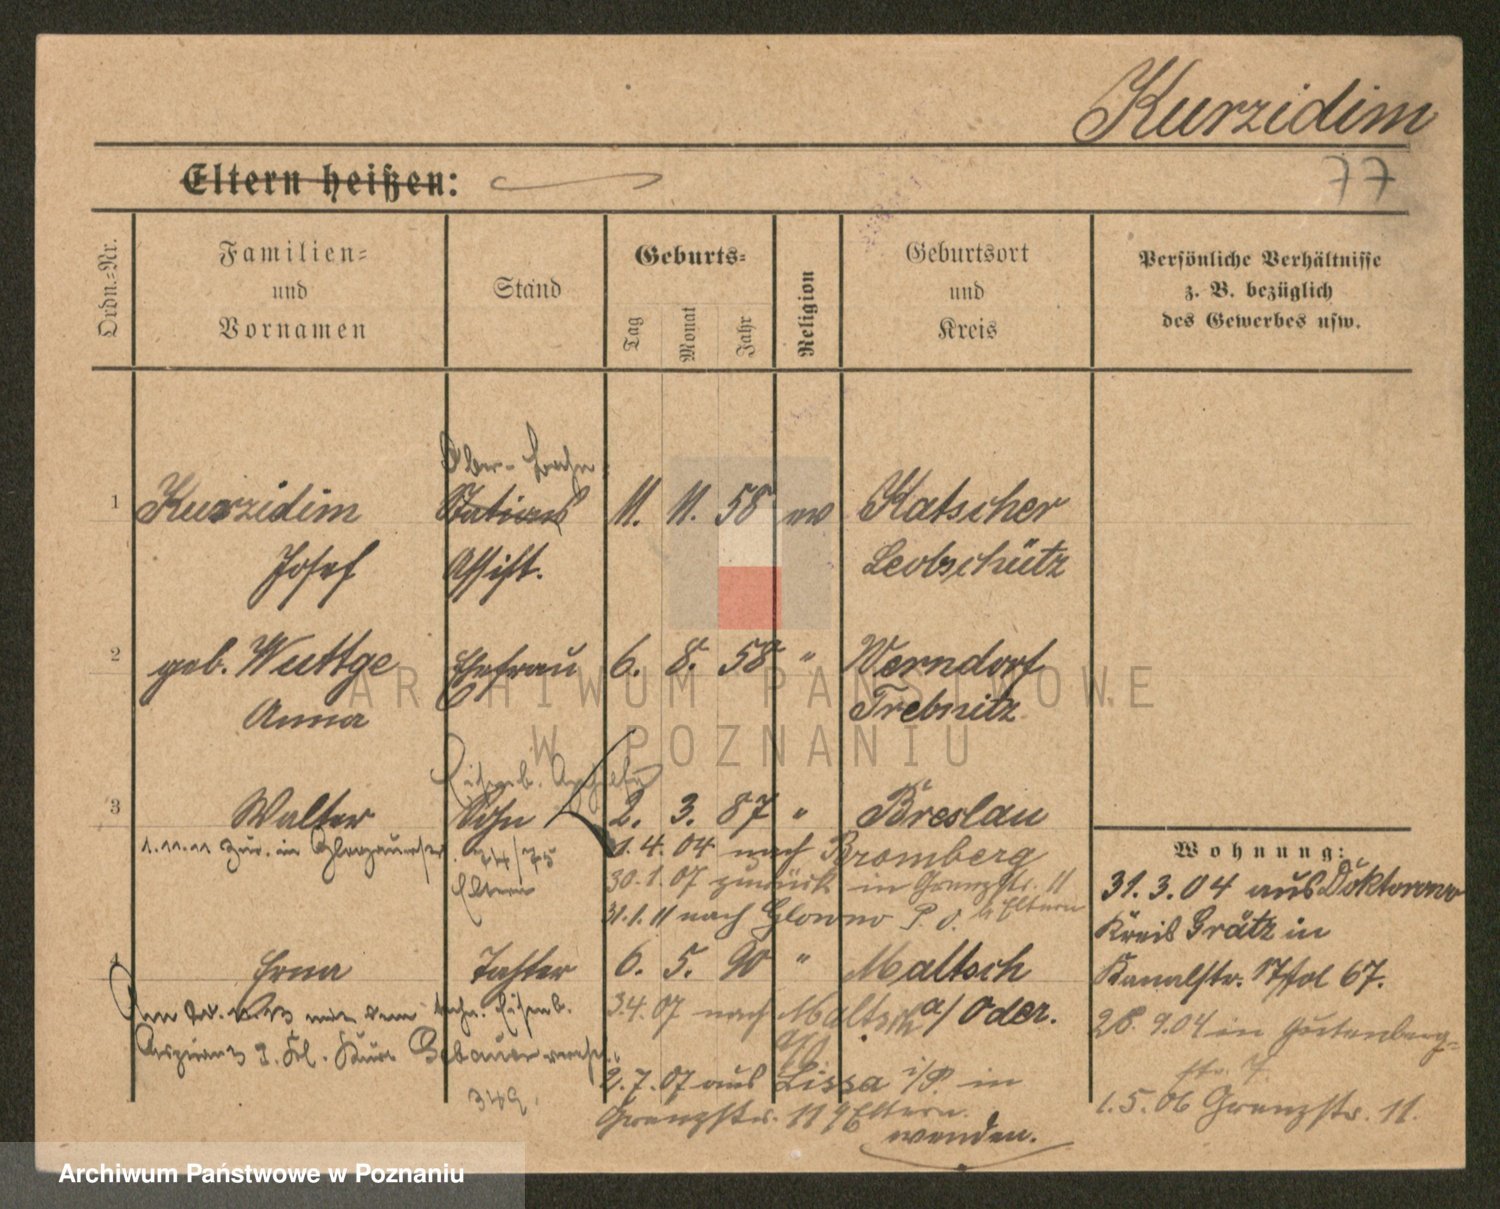 Kurzidim
77
Eltern heißen:
Ordn.-Nr.
Familien-
und
Vornamen
Stand
Geburts-
Tag
Monat
Jahr
Religion
Geburtsort
und
Kreis
Persönliche Verhältnisse
z. B. bezüglich
des Gewerbes usw.
Ober-Bahn
1 Kurzidim Stations 11. 11. 58 ev Katscher
Josef Assist. Leobschütz
2 geb. Wuttge Ehefrau 6. 8. 58 " Werndorf
Anna Trebnitz
Eisenb.
3 Walter Sohn 2. 3. 87 " Breslau
1.11.11 zur. in 74/75 1.4.04 nach Bromberg
Eltern 30.1.07 zurück in Grenzstr. 11
31.1.11 nach Glowno P. O. b Eltern
4 Erna Tochter 6. 5. 90 " Maltsch
a/Oder.
mit dem Eisenb.
3.4.07 nach Maltsch
Kurt
2.7.07 aus Lissa i/P. in
349.
Grenzstr. 11 b Eltern.
wenden.
Wohnung:
31.3.04 aus Doktorowo
Kreis Grätz in
Kanalstr. 17 67.
28.9.04 in Gutenberg-
str. 7.
1.5.06 Grenzstr. 11.
ARCHIWUM PAŃSTWOWE
W POZNANIU
Archiwum Państwowe w Poznaniu